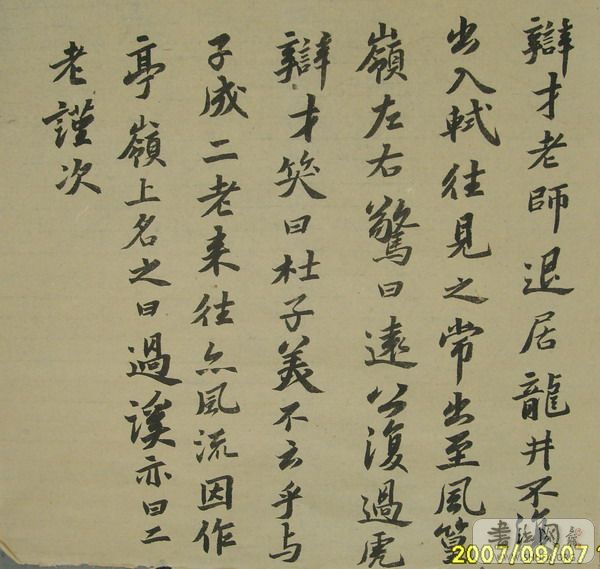 辯才老師退居龍井不復
出入軾往見之常出至風篁
嶺左右驚曰遠公復過虎
辯才笑曰杜子美不云乎与
子成二老来往亦風流因作
亭嶺上名之曰過溪亦曰二
老謹次
2007/09/07